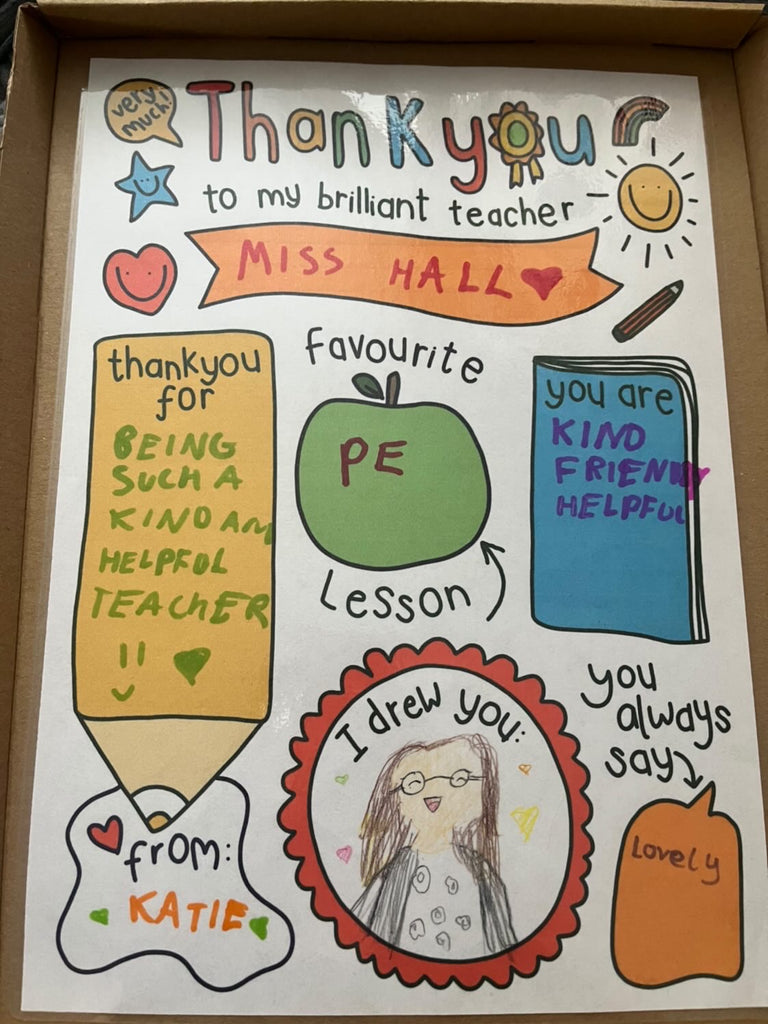 very
much!
Thankyou
to my brilliant teacher
MISS HALL
thankyou
for
BEING
SUCH A
KIND AN
HELPFUL
TEACHER
!!
favourite
PE
Lesson
you are
KIND
FRIENDLY
HELPFUL
I drew you:
you
always
say
Lovely
from:
KATIE